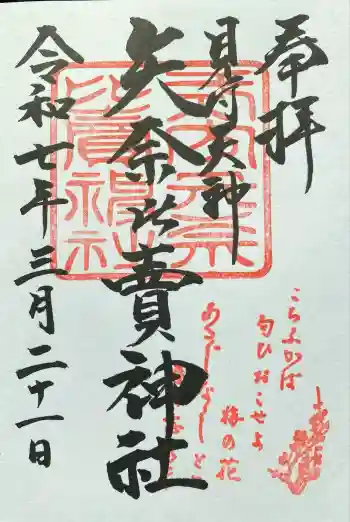 奉拝
見付天神
矢奈比賣神社
令和七年三月二十一日
こちふかば
匂ひおこせよ
梅の花
あるじなしとて